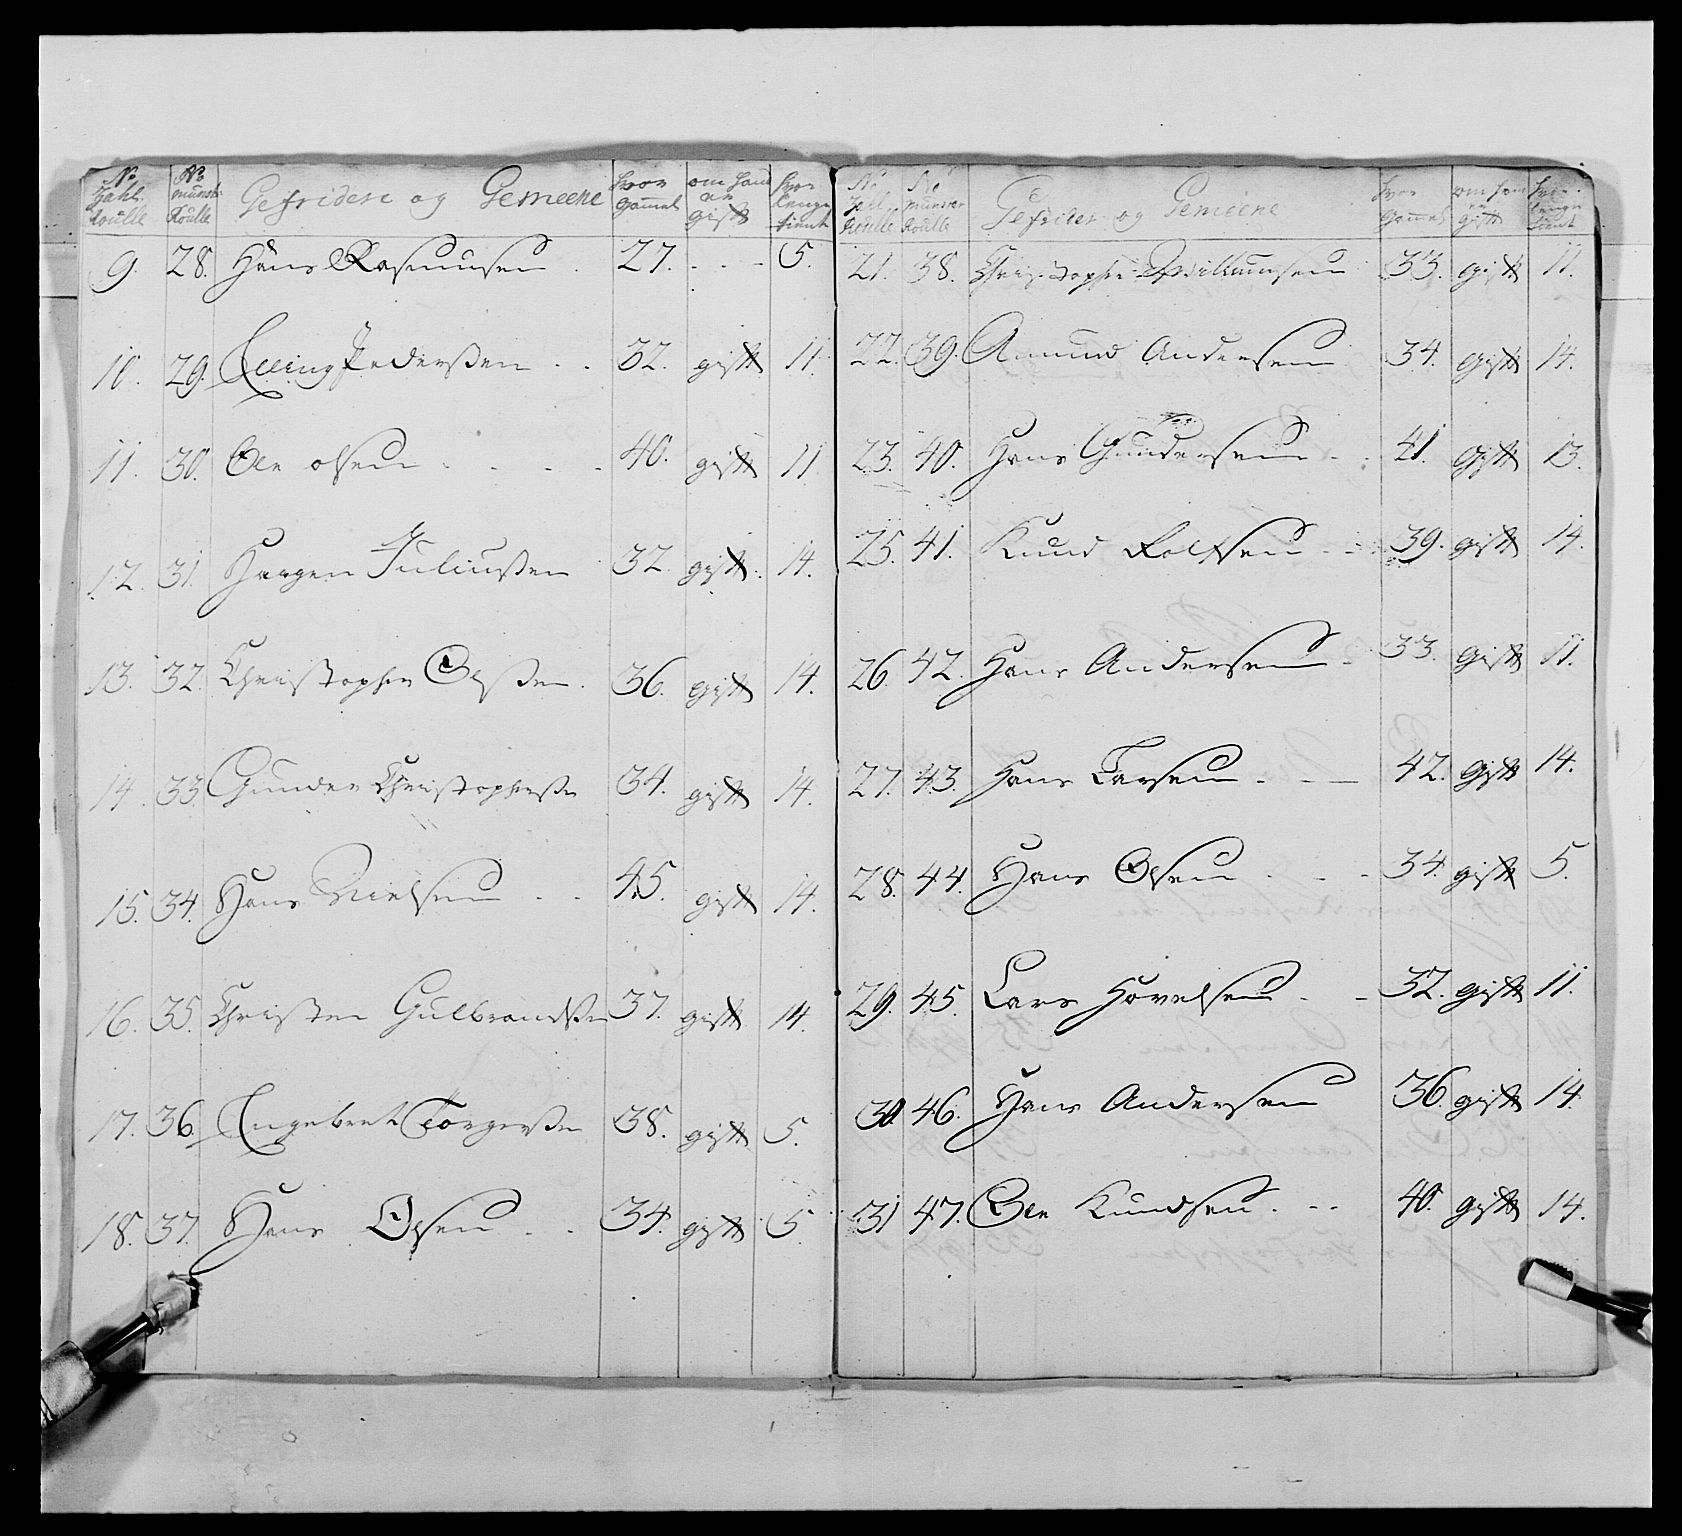 No Tahl Roulle | No munster Roulle | Gefridere og Gemeene | hvor Gammel | om hand er gift | hvor lenge tient
9. 28. Hans Rasmusen . 27. - - - 5.
10. 29. Elling Pederßen . . 32. gift 11.
11. 30. Ole olsen . . . . 40. gift 11
12. 31. Jørgen Juliußen 32. gift. 14.
13. 32. Christopher Olßen. 36. gift 14.
14. 33. Gunder Christopherße 34. gift 14.
15. 34. Hans Nielsen . . 45. gift 14.
16. 35. Christen Gulbrandße 37. gift 14.
17. 36. Engebret Torgerße 38. gift 5.
18. 37. Hans Olsen . . 34. gift 5.
No Tahl Roulle | No munster Roulle | Gefrider og Gemeene | hvor Gammel | om hand er gift | hvor lenge tient
21. 38. Christopher Willumsen 33. gift 11.
22. 39. Amund Andersen 34. gift 14.
23. 40. Hans Gundersen - . 41. gift 13.
25. 41. Knud Rolfsen - - 39. gift 14.
26. 42. Hans Andersen - 33. gift 11.
27. 43. Hans Larsen . - 42. gift 14.
28. 44. Hans Olsen . . . 34. gift 5.
29. 45. Lars Hovelsen . . 32. gift 11.
30. 46. Hans Andersen 36. gift 14.
31 47. Ole Knudsen . - - 40. gift 14.